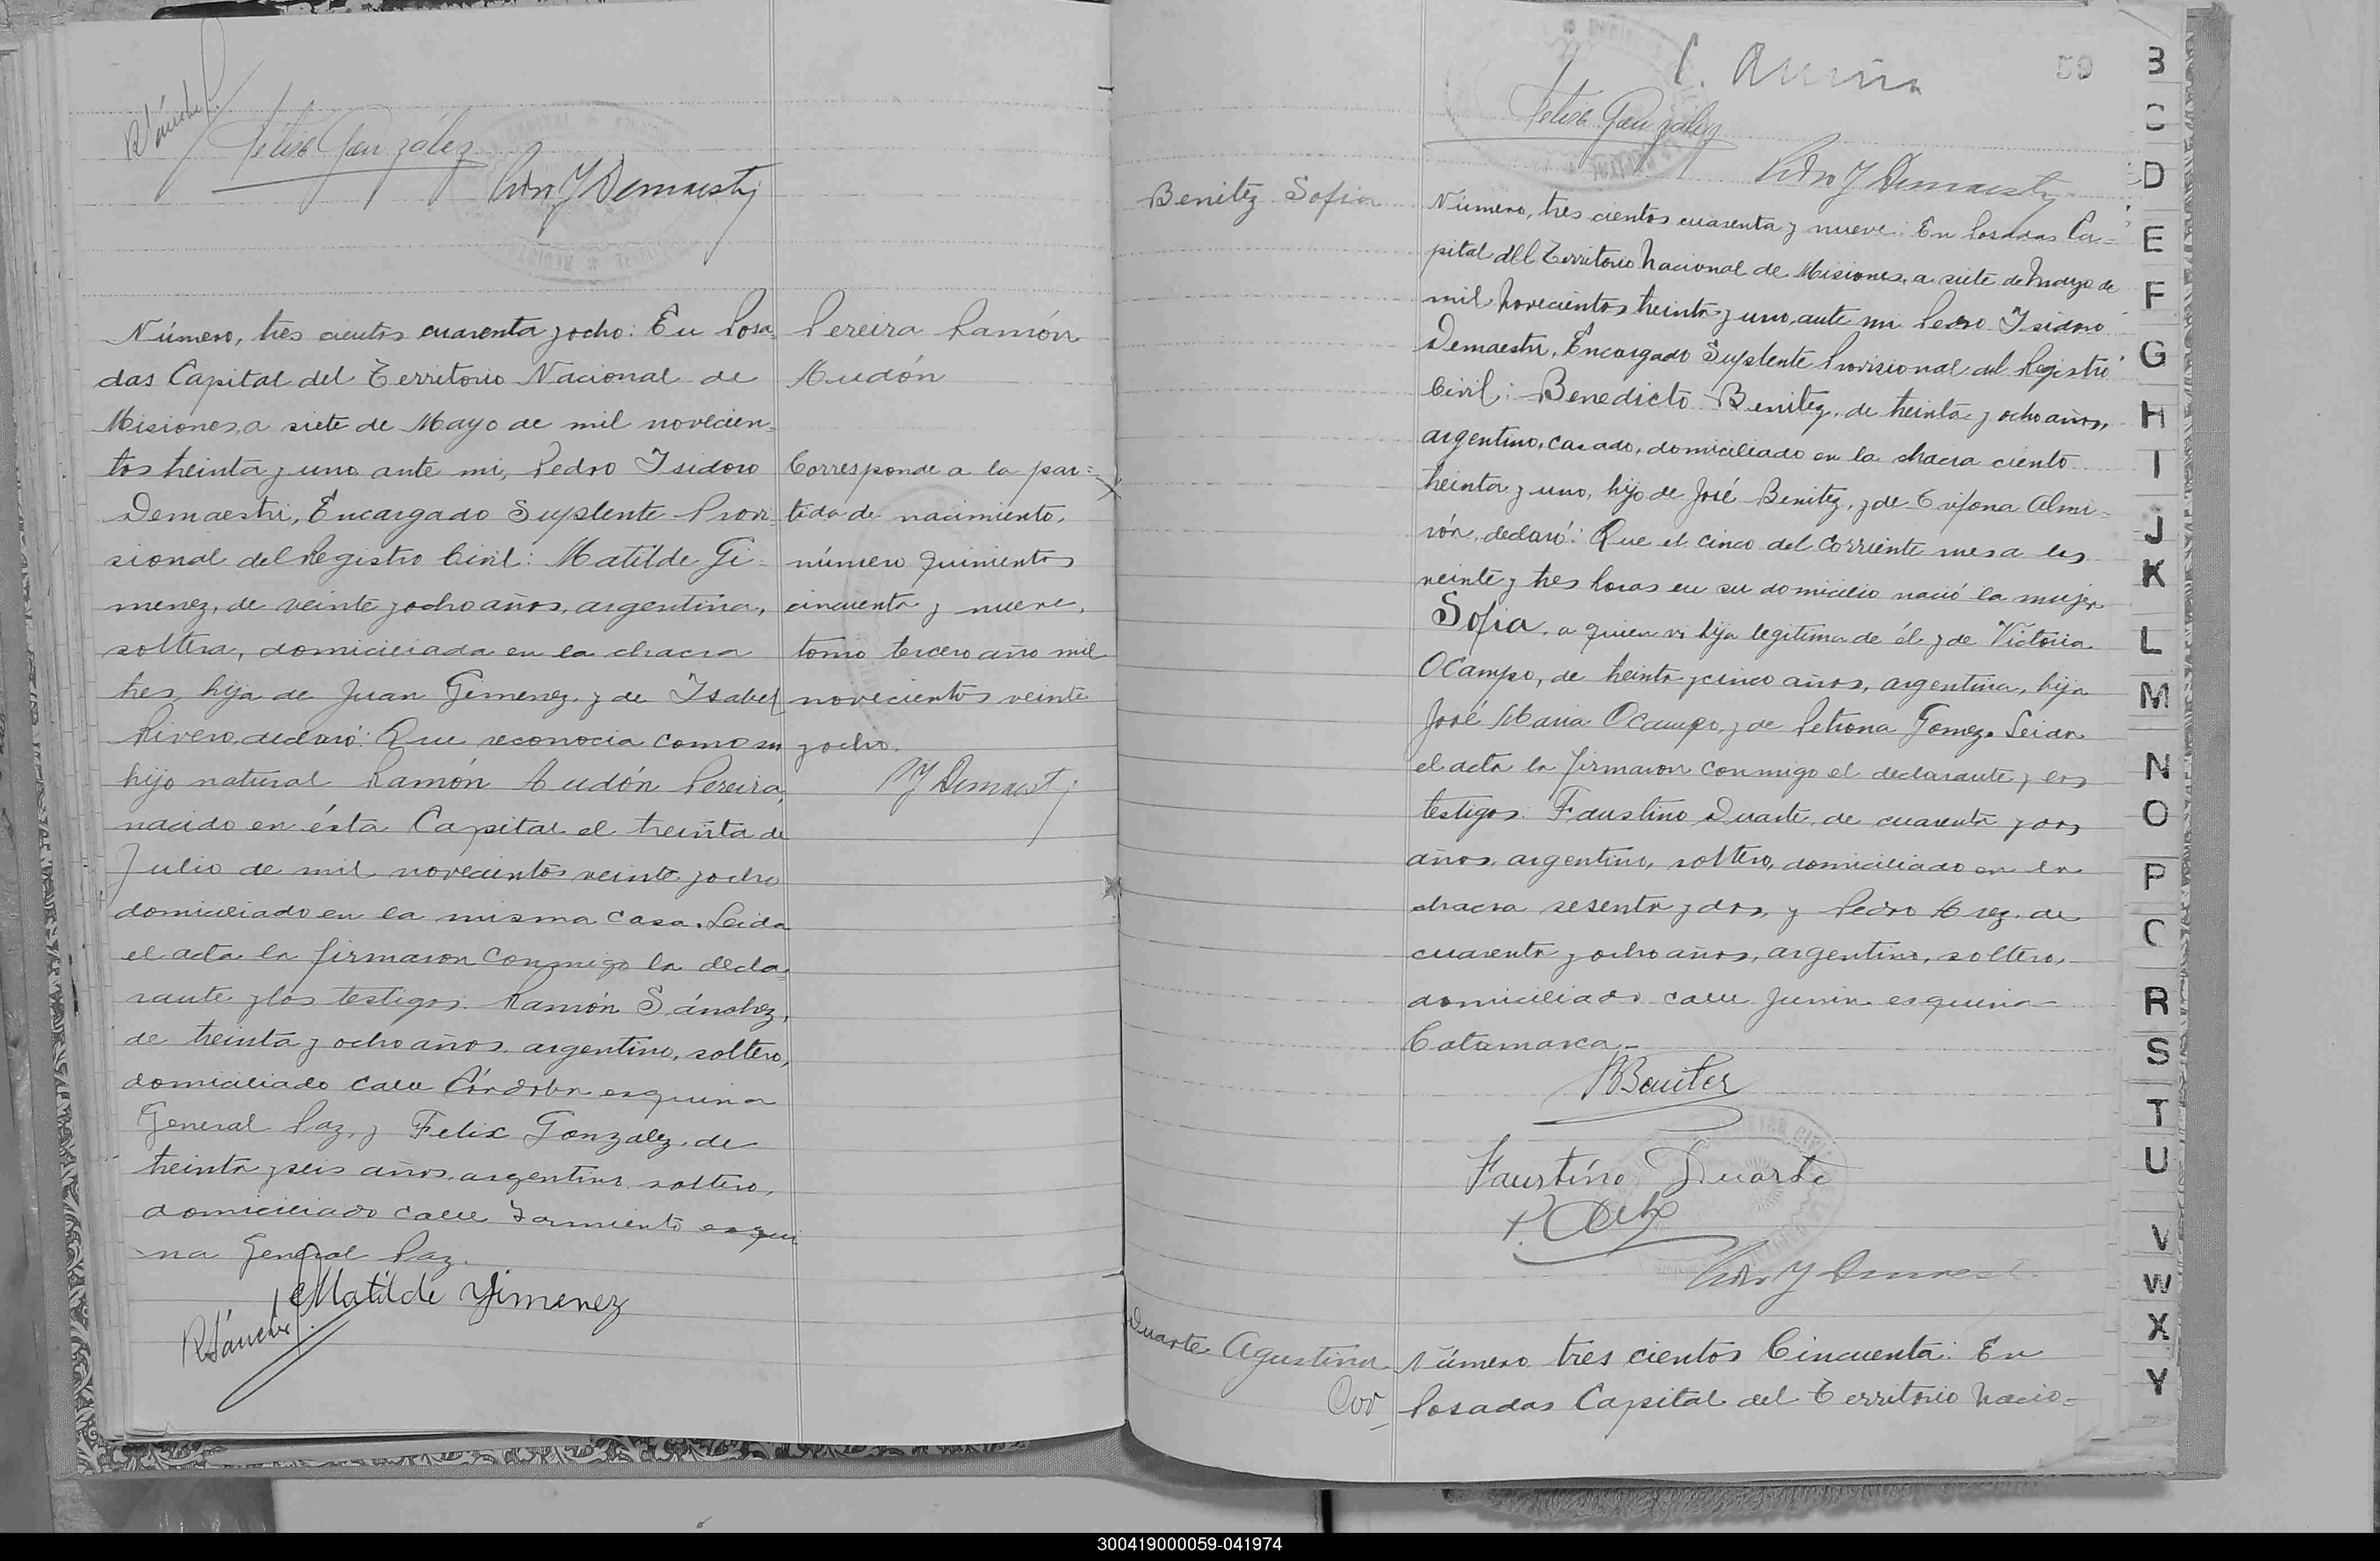 R Sánchez
Felix González
Pedro Y Demaestri
Número, tres cientos cuarenta y ocho: En Posa=
das Capital del Territorio Nacional de
Misiones, a siete de Mayo de mil novecien=
tos treinta y uno ante mi, Pedro Isidoro
Demaestri, Encargado Suplente Provi=
sional del Registro Civil: Matilde Gi=
menez, de veinte y ocho años, argentina,
soltera, domiciliada en la chacra
tres, hija de Juan Gimenez, y de Isabel
Rivero, declaró: Que reconocia como su
hijo natural Ramón Audón Pereira,
nacido en ésta Capital el treinta de
Julio de mil novecientos veinte y ocho
domiciliado en la misma casa. Leida
el acta la firmaron conmigo la decla=
rante y los testigos: Ramón Sánchez,
de treinta y ocho años, argentino, soltero,
domiciliado calle Córdoba esquina
General Paz, y Felix Gonzalez, de
treinta y seis años, argentino soltero,
domiciliado calle Sarmiento esqui
na General Paz.
Matilde Gimenez
R Sánchez
Pereira Ramón
Audón
Corresponde a la par=
tida de nacimiento,
número quinientos
cincuenta y nueve,
tomo tercero año mil
novecientos veinte
y ocho.
P Y Demaestri
59
Felix González
Pedro Y Demaestri
Benitez Sofia
Número, tres cientos cuarenta y nueve: En Posadas Ca=
pital del Territorio Nacional de Misiones, a siete de Mayo de
mil novecientos treinta y uno, ante mi Pedro Isidoro
Demaestri, Encargado Suplente Provisional del Registro
Civil: Benedicto Benitez, de treinta y ocho años,
argentino, casado, domiciliado en la chacra ciento
treinta y uno, hijo de José Benitez, y de Trifona Almi=
rón, declaró: Que el cinco del corriente mes a las
veinte y tres horas en su domicilio nació la mujer
Sofia, a quien vi hija legitima de él y de Victoria
Ocampo, de treinta y cinco años, argentina, hija
José Maria Ocampo, y de Petrona Gomez. Leida
el acta la firmaron conmigo el declarante y los
testigos: Faustino Duarte, de cuarenta y dos
años, argentino, soltero, domiciliado en la
chacra sesenta y dos, y Pedro de
cuarenta y ocho años, argentino, soltero,
domiciliado calle Junin esquina
Catamarca.-
B Benitez
Faustino Duarte
Pedro Y Demaestri
Duarte Agustina
Número tres cientos Cincuenta: En
Posadas Capital del Territorio Nacio=
B
C
D
E
F
G
H
I
J
K
L
M
N
O
P
C
R
S
T
U
V
W
X
Y
300419000059-041974